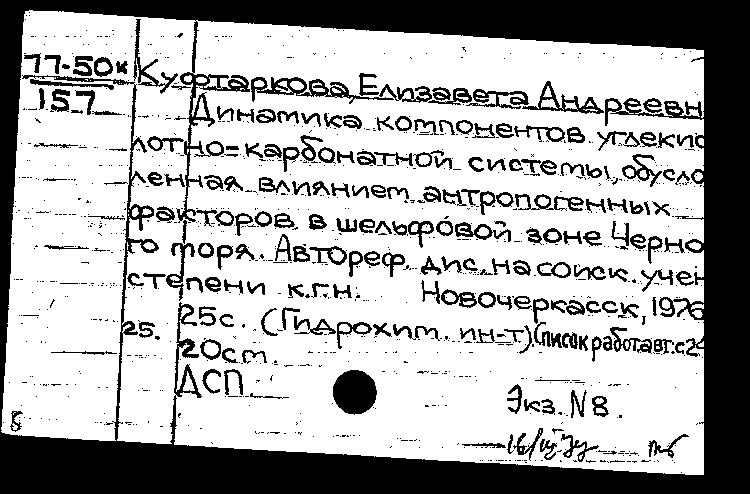 77-50к
157
Куфтаркова, Елизавета Андреевн
Динамика компонентов углекис
лотно-карбонатной системы, обусло
ленная влиянием антропогенных
факторов в шельфовой зоне Черно
го моря. Автореф. дис. на соиск. учен
степени к.г.н. Новочеркасск, 1976
25с. (Гидрохим. ин-т) (Список работ авт. с.24
25.
20см.
ДСП.
Экз. N 8.
Б